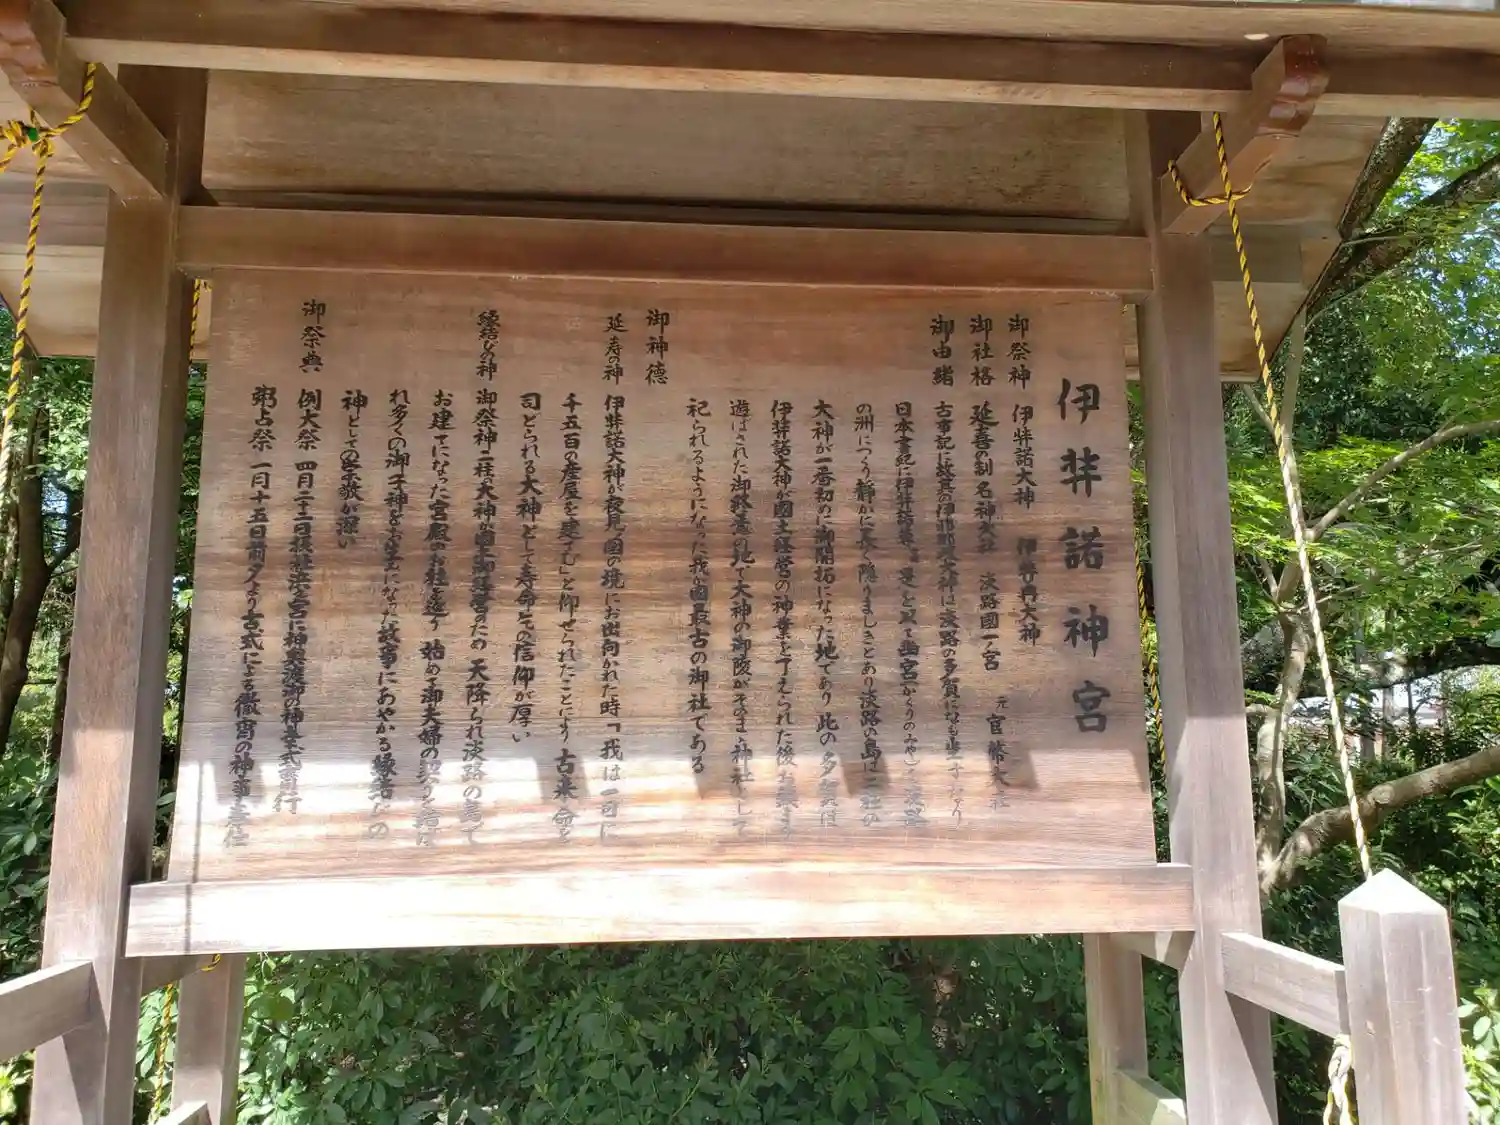 伊弉諾神宮
御祭神 伊弉諾大神 伊弉冉大神
御社格 延喜の制 名神大社 淡路國一ノ宮 元 官幣大社
御由緒 古事記に故其の伊耶那岐大神は淡路の多賀になも坐すなり
日本書紀に伊弉諾尊 是を以て幽宮(かくりのみや)を
の洲につくり静かに長く隠りましきとあり淡路の島は二柱の
大神が一番初めに御開拓になった地であり 此の 多賀は
伊弉諾大神が國土経営の神業を了えられた後 お住まい
遊ばされた御縁 地で大神の御陵がそのまゝ神社として
祀られるようになった我が國最古の御社である
御神徳
延寿の神 伊弉諾大神が夜見の國の境にお出向かれた時「我は一日に
千五百の産屋を建てむ」と仰せられたことにより 古来 命を
司どられる大神として寿命 の信仰が厚い
縁結びの神 御祭神二柱の大神が國土御経営のため 天降られ淡路の島で
お建てになった宮殿 お柱を巡り 始めて御夫婦の契りを結ば
れ多くの御子神をお生みになった故事にあやかる縁結びの
神としての崇敬が深い
御祭典 例大祭 四月二十二日 浜之宮に神輿渡御の神幸式斎行
粥占祭 一月十五日前夕より古式による徹宵の神事奉仕